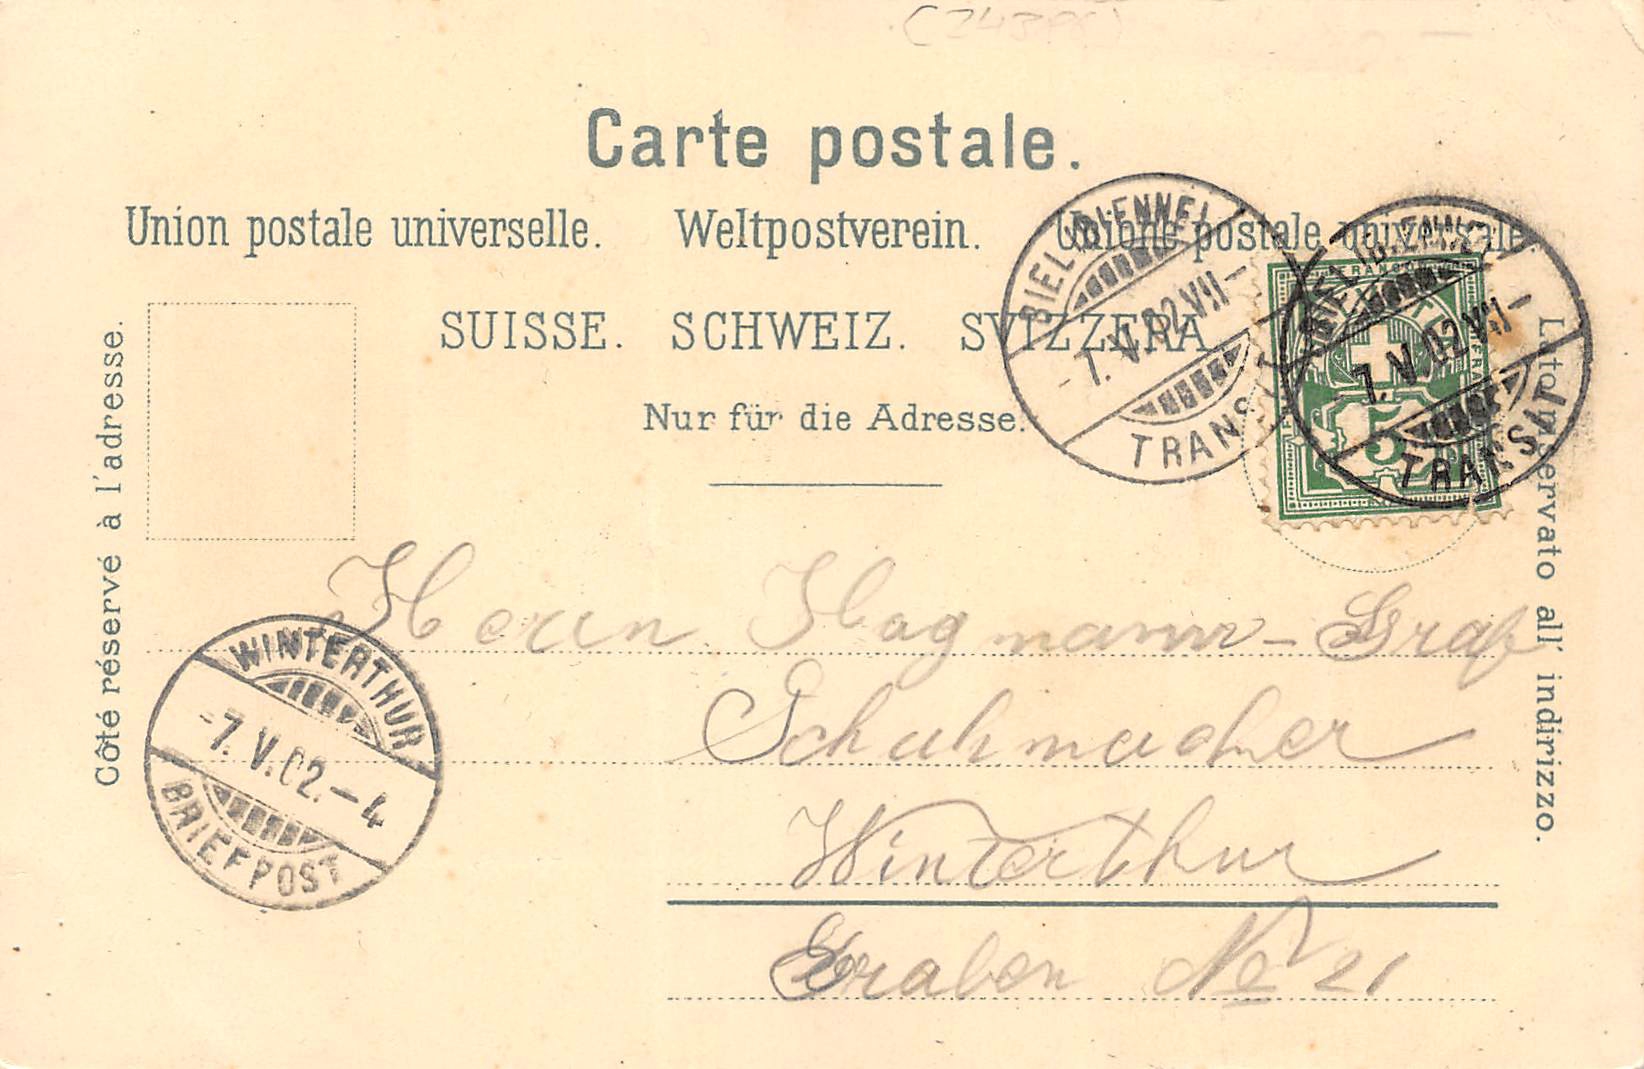 Carte postale.
Union postale universelle. Weltpostverein. Unione postale universale
SUISSE. SCHWEIZ. SVIZZERA
Nur für die Adresse.
Côté réservé à l'adresse.
Lato riservato all' indirizzo.
BIEL (BIENNE)
-7.V.02.VII-
TRANSIT
BIEL (BIENNE)
7.V.02.VII-
TRANSIT
FRANCO
5
WINTERTHUR
-7.V.02.-4
BRIEFPOST
Herrn Hagmann-Graf
Schuhmacher
Winterthur
Graben No 21